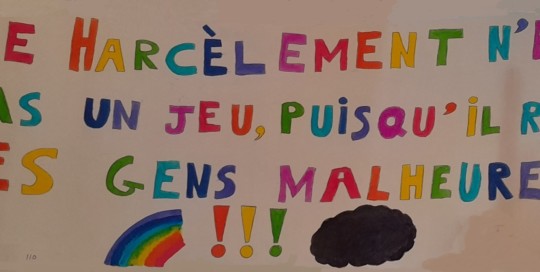 E HARCÈLEMENT N'E
AS UN JEU, PUISQU'IL R
ES GENS MALHEURE
!!!